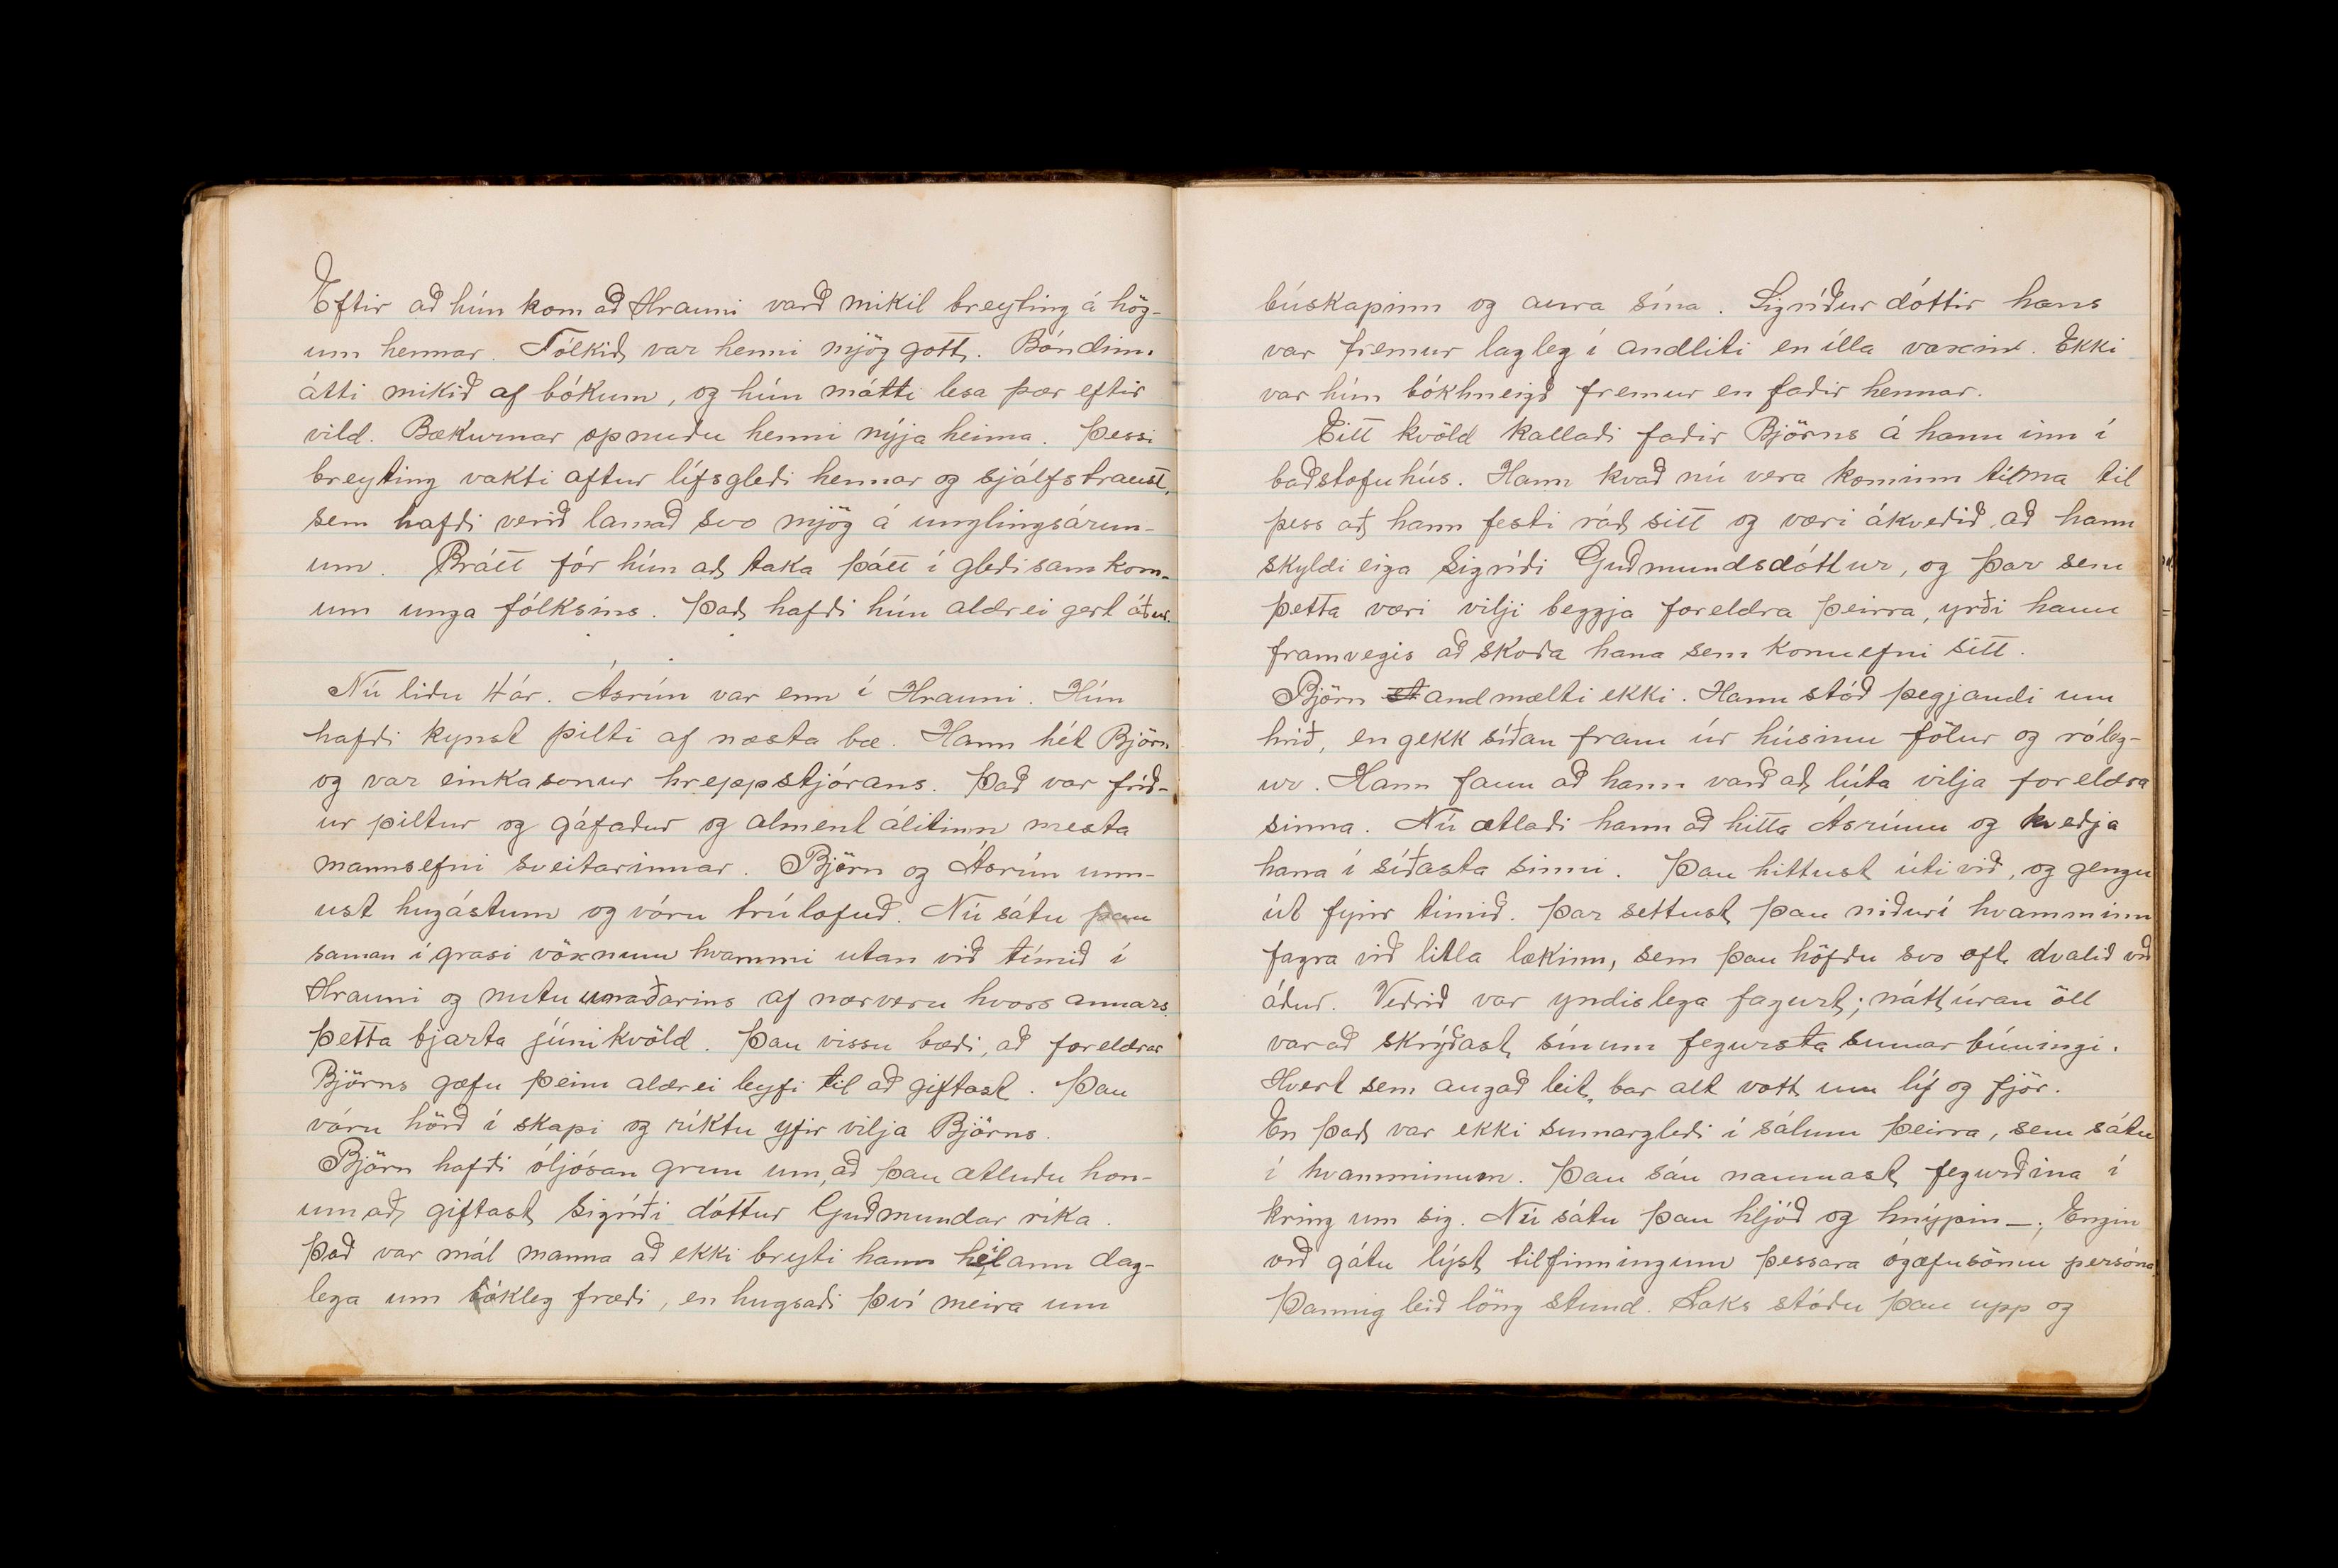 Eftir að hún kom að Hrauni varð mikil breyting á hög-
um hennar. Fólkið var henni mjög gott. Bóndinn
átti mikið af bókum, og hún mátti lesa þær eftir
vild. Bækurnar opnuðu henni nýja heima. Þessi
breyting vakti aftur lífsgleði hennar og sjálfstraust,
sem hafði verið lamað svo mjög á unglingsárun-
um. Brátt fór hún að taka þátt í gleðisamkom-
um unga fólksins. Það hafði hún aldrei gert áður.
Nú liðu 4 ár. Ásrún var enn í Hrauni. Hún
hafði kynst pilti af næsta bæ. Hann hét Björn
og var einkasonur hreppstjórans. Það var fríð-
ur piltur og gáfaður og alment álitinn mesta
mannsefni sveitarinnar. Björn og Ásrún unn-
ust hugástum og vóru trúlofuð. Nú sátu þau
saman í grasi vöxnum hvammi utan við túnið í
Hrauni og nutu unaðarins af nærveru hvors annars
þetta bjarta júníkvöld. Þau vissu bæði, að foreldrar
Björns gæfu þeim aldrei leyfi til að giftast. Þau
vóru hörð í skapi og ríktu yfir vilja Björns.
Björn hafði óljósan grun um, að þau ætluðu hon-
um að giftast Sigríði dóttur Guðmundar ríka.
Það var mál manna að ekki bryti hann heilann dag-
lega um bókleg fræði, en hugsaði því meira um
búskapinn og aura sína. Sigríður dóttir hans
var fremur lagleg í andliti en illa vaxin. Ekki
var hún bókhneigð fremur en faðir hennar.
Eitt kvöld kallaði faðir Björns á hann inn í
baðstofuhús. Hann kvað nú vera kominn tíma til
þess að hann festi ráð sitt og væri ákveðið, að hann
skyldi eiga Sigríði Guðmundsdóttur, og þar sem
þetta væri vilji beggja foreldra þeirra, yrði hann
framvegis að skoða hana sem konuefni sitt.
Björn st andmælti ekki. Hann stóð þegjandi um
hríð, en gekk síðan fram úr húsinu fölur og róleg-
ur. Hann fann að hann varð að lúta vilja foreldra
sinna. Nú ætlaði hann að hitta Ásrúnu og kveðja
hana í síðasta sinni. Þau hittust úti við, og gengu
út fyrir túnið. Þar settust þau niður í hvamminn
fagra við litla lækinn, sem þau höfðu svo oft dvalið við
áður. Veðrið var yndislega fagurt; náttúran öll
var að skrýðast sínum fegursta sumarbúningi.
Hvert sem augað leit, bar alt vott um líf og fjör.
En það var ekki sumargleði í sálum þeirra, sem sátu
í hvamminum. Þau sáu naumast fegurðina í
kring um sig. Nú sátu þau hljóð og hnýpin —; Engin
orð gátu lýst tilfinningum þessara ógæfusömu persóna.
Þannig leið löng stund. Laks stóðu þau upp og